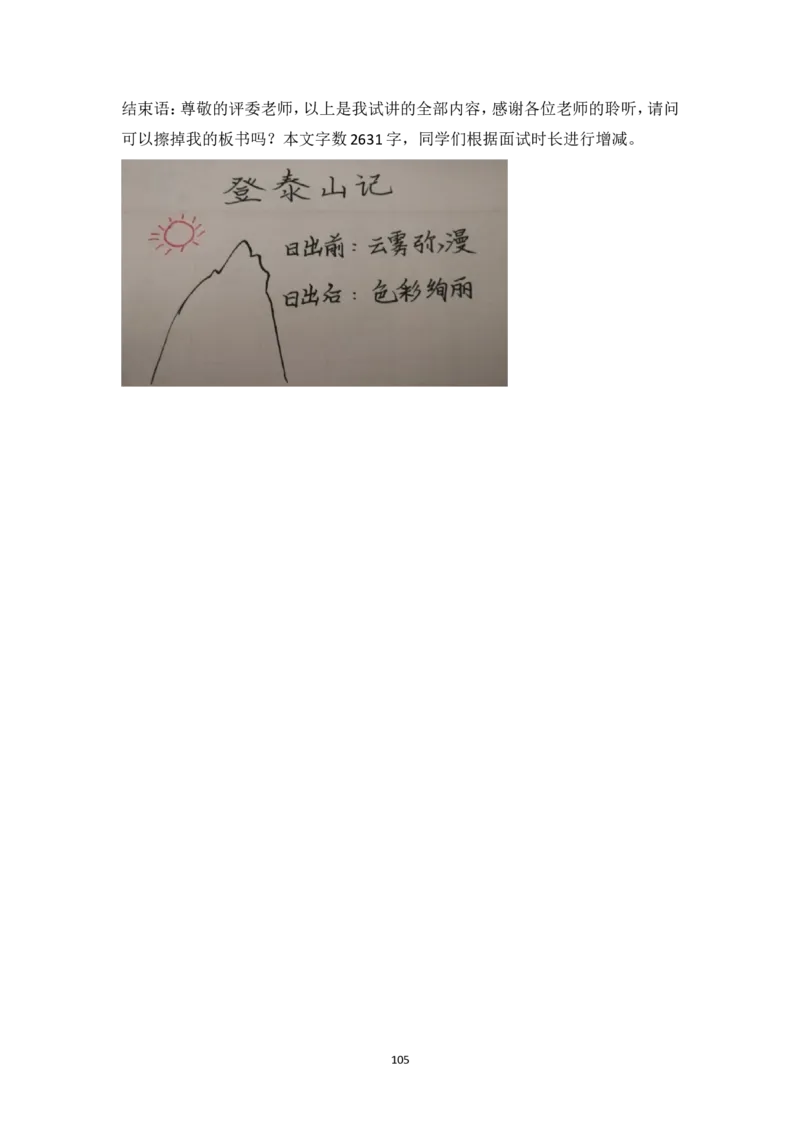 结束语：尊敬的评委老师，以上是我试讲的全部内容，感谢各位老师的聆听，请问
可以擦掉我的板书吗？本文字数2631字，同学们根据面试时长进行增减。
登泰山记
日出前：云雾弥漫
日出后：色彩绚丽
105